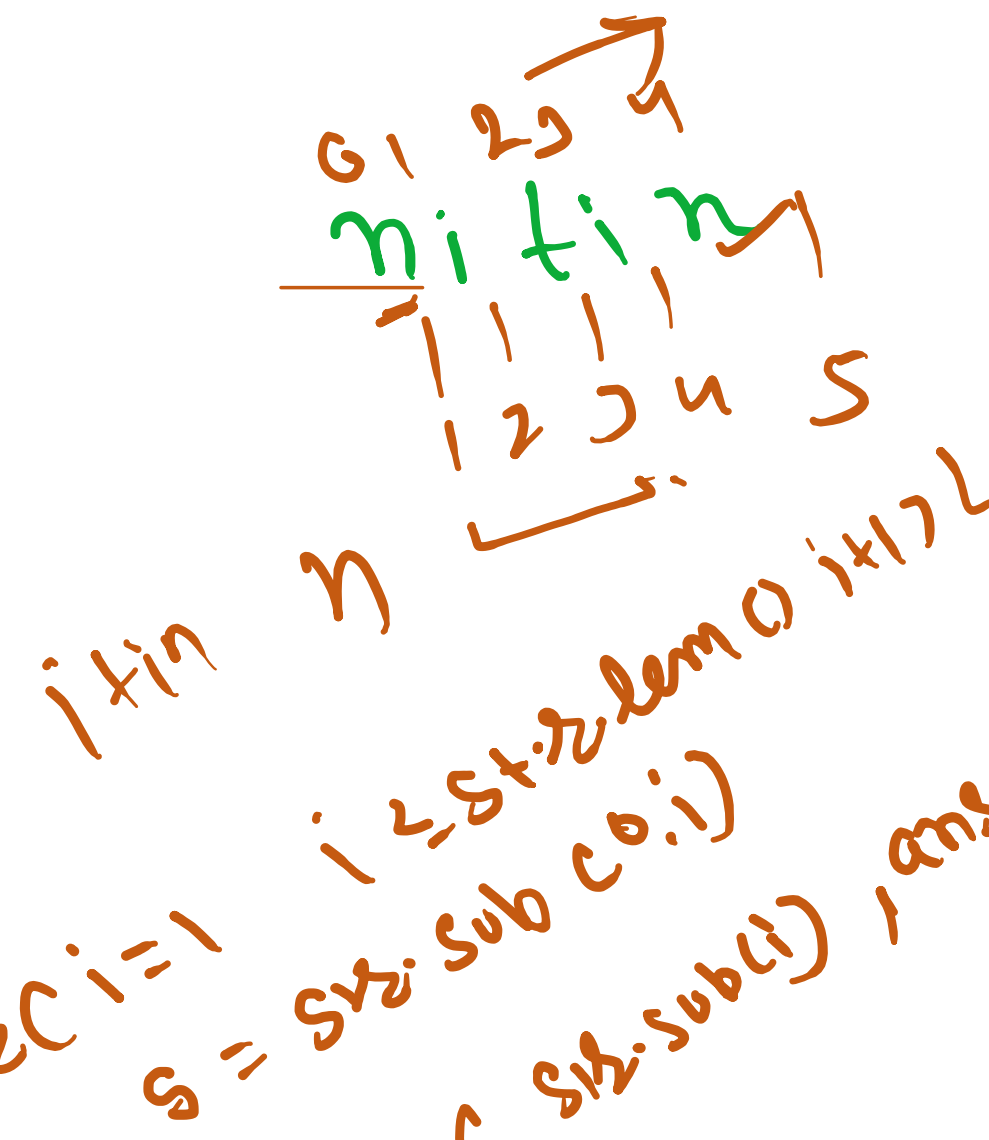 0 1 2 3 4
nitin
1 2 3 4 5
n
itin
(i=1 i<=str.len() i++) {
s = str.sub(0,i)
str.sub(i), ans